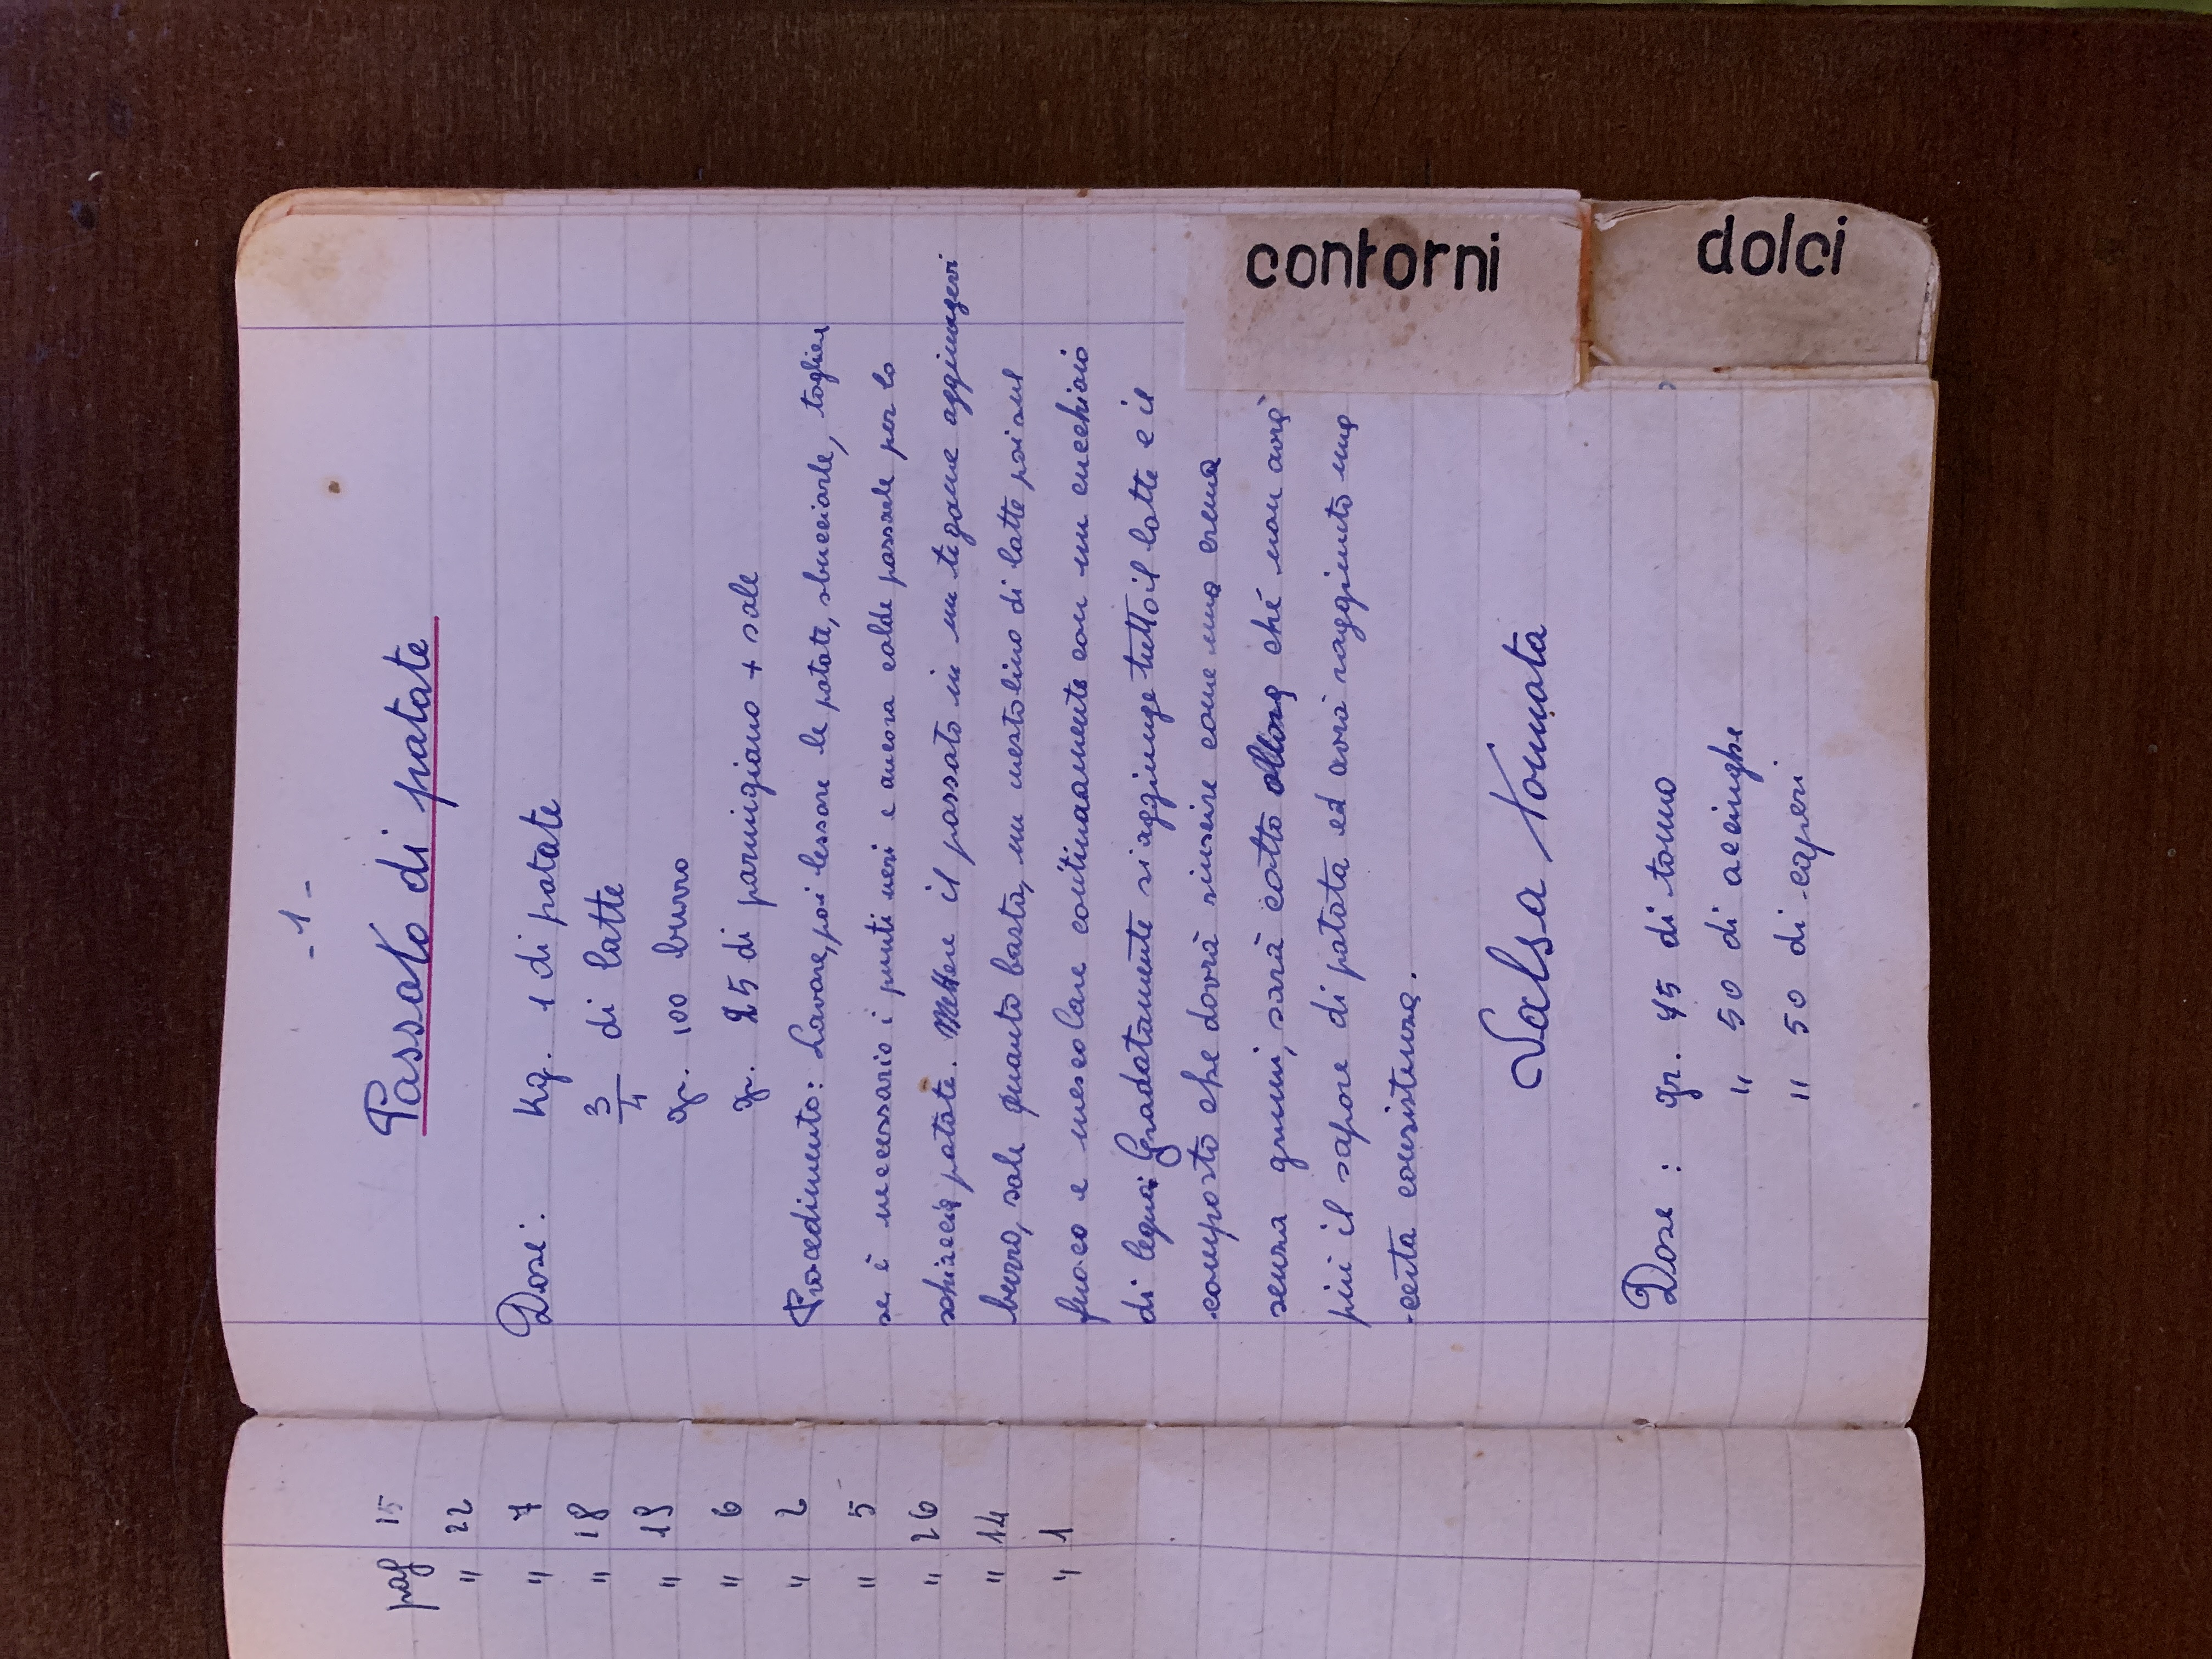 pag 15
" 22
" 7
" 18
" 19
" 6
" 2
" 5
" 26
" 14
" 1
- 1 -
Passato di patate
Dose: Kg. 1 di patate
3/4 di latte
gr. 100 burro
gr. 25 di parmigiano + sale
Procedimento: Lavare, poi lessare le patate, sbucciarle, togliere
se è neccessario i punti neri e ancora calde passarle per lo
schiaccia patate. Mettere il passato in un tegame aggiungervi
burro, sale quanto basta, un mestolino di latte poi sul
fuoco e mescolare continuamente con un cucchiaio
di legno: Gradatamente si aggiunge tutto il latte e il
composto che dovrà riuscire come una crema
senza grumi, sarà cotto allora ché non avrà
più il sapore di patata ed avrà raggiunto una
certa consistenza.
Salsa Tonnata
Dose : gr. 75 di tonno
" 50 di acciughe
" 50 di caperi
contorni
dolci